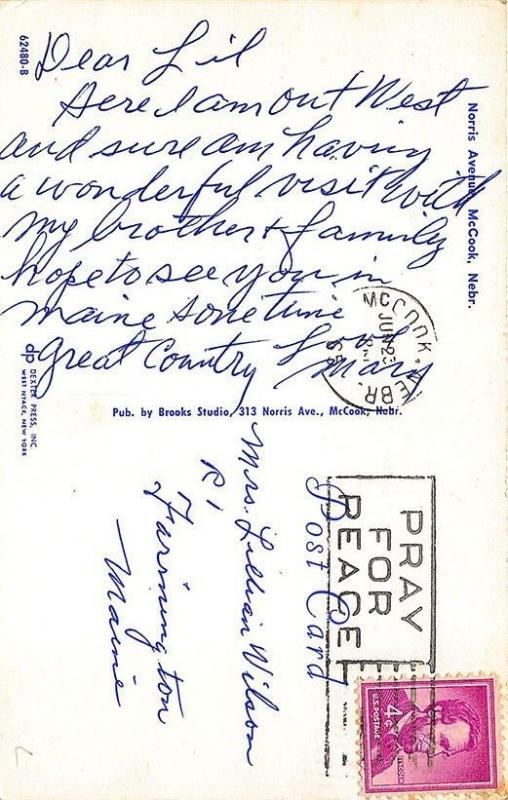 62480-B
Dear Lil
Here I am out West
and sure am having
a wonderful visit with
my brother & family
hope to see you in
maine sometime
Great Country Love
Mary
Norris Avenue, McCook, Nebr.
DEXTER PRESS, INC.
WEST NYACK, NEW YORK
Pub. by Brooks Studio, 313 Norris Ave., McCook, Nebr.
MCCOOK, NEBR.
JUN 23
Post Card
PRAY
FOR
PEACE
Mrs. Lillian Wilson
R 1
Farmington
Maine
4¢
U.S. POSTAGE
LINCOLN